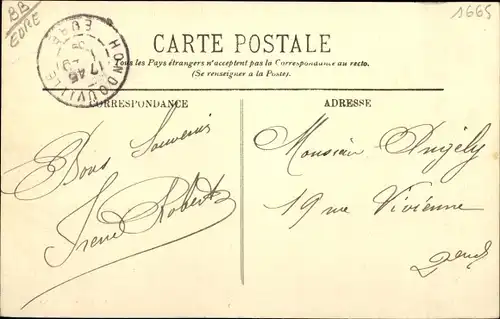 BB
EURE
1665
HONDOUVILLE
EURE
17
CARTE POSTALE
Tous les Pays étrangers n'acceptent pas la Correspondance au recto.
(Se renseigner à la Poste).
CORRESPONDANCE
ADRESSE
Bons Souvenirs
Irène Robert
Monsieur Angély
19 rue Vivienne